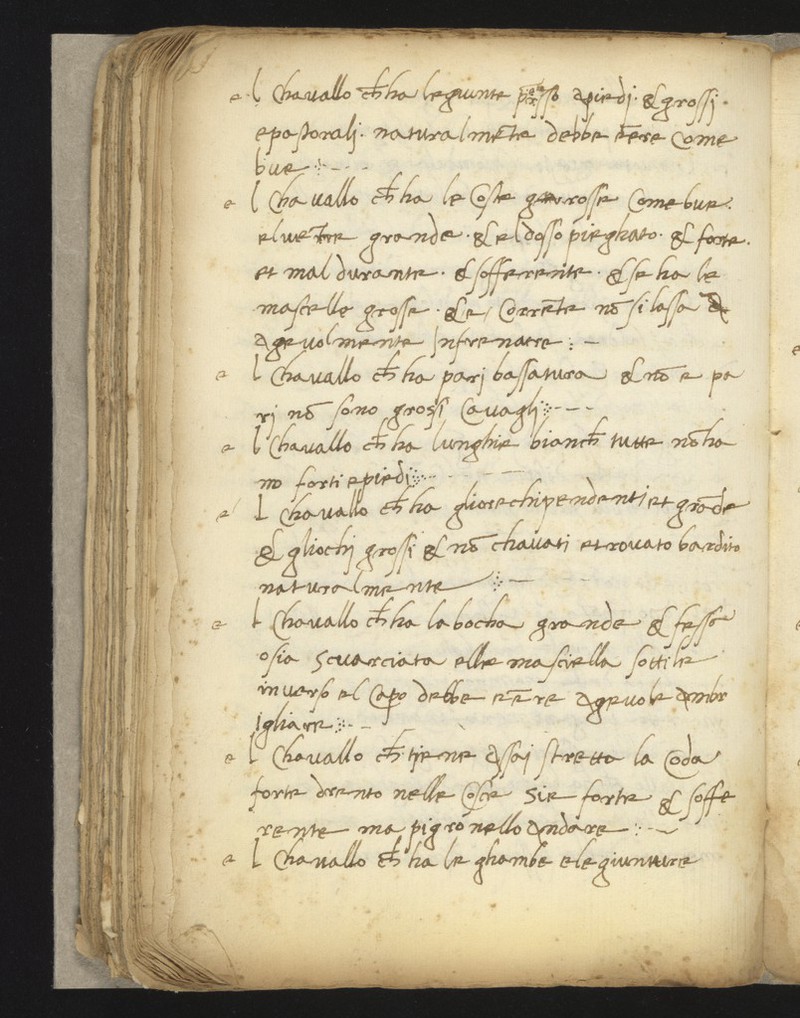 el chavallo ch̄ ha le giunte presso apiedi · & grossi ·
epastorali · naturalmẽte debbe eẽre come
bue
el chavallo ch̄ ha le coste grosse come bue ·
elventre grande · & el dosso pieghato · & forte ·
et mal durante · & sofferente · & se ha le
mascelle grosse · & e corrẽte nõ si lassa
agevolmente Infrenatre : –
el chavallo ch̄ ha parj bassatura & nõ e pa
rj nõ sono grossi cavaglj
el chavallo ch̄ ha lunghie bianch̄ tutte nõ ha
no forti epiedj
el chavallo ch̄ ha gliorechipendenti et grãde
& gliochj grossi & nõ chavati et rovato bardito
naturalmente
el chavallo ch̄ ha la bocha grande & fessa
osia scuarciata elle masciella sottile
inverso el capo debbe eẽre agevole ambr
igliare
el chavallo ch̄ tiene assaj stretta la coda
forte drento nelle coscie sie forte & soffe
rente ma pigro nello andare : –
el chavallo ch̄ ha le ghambe ele giunture